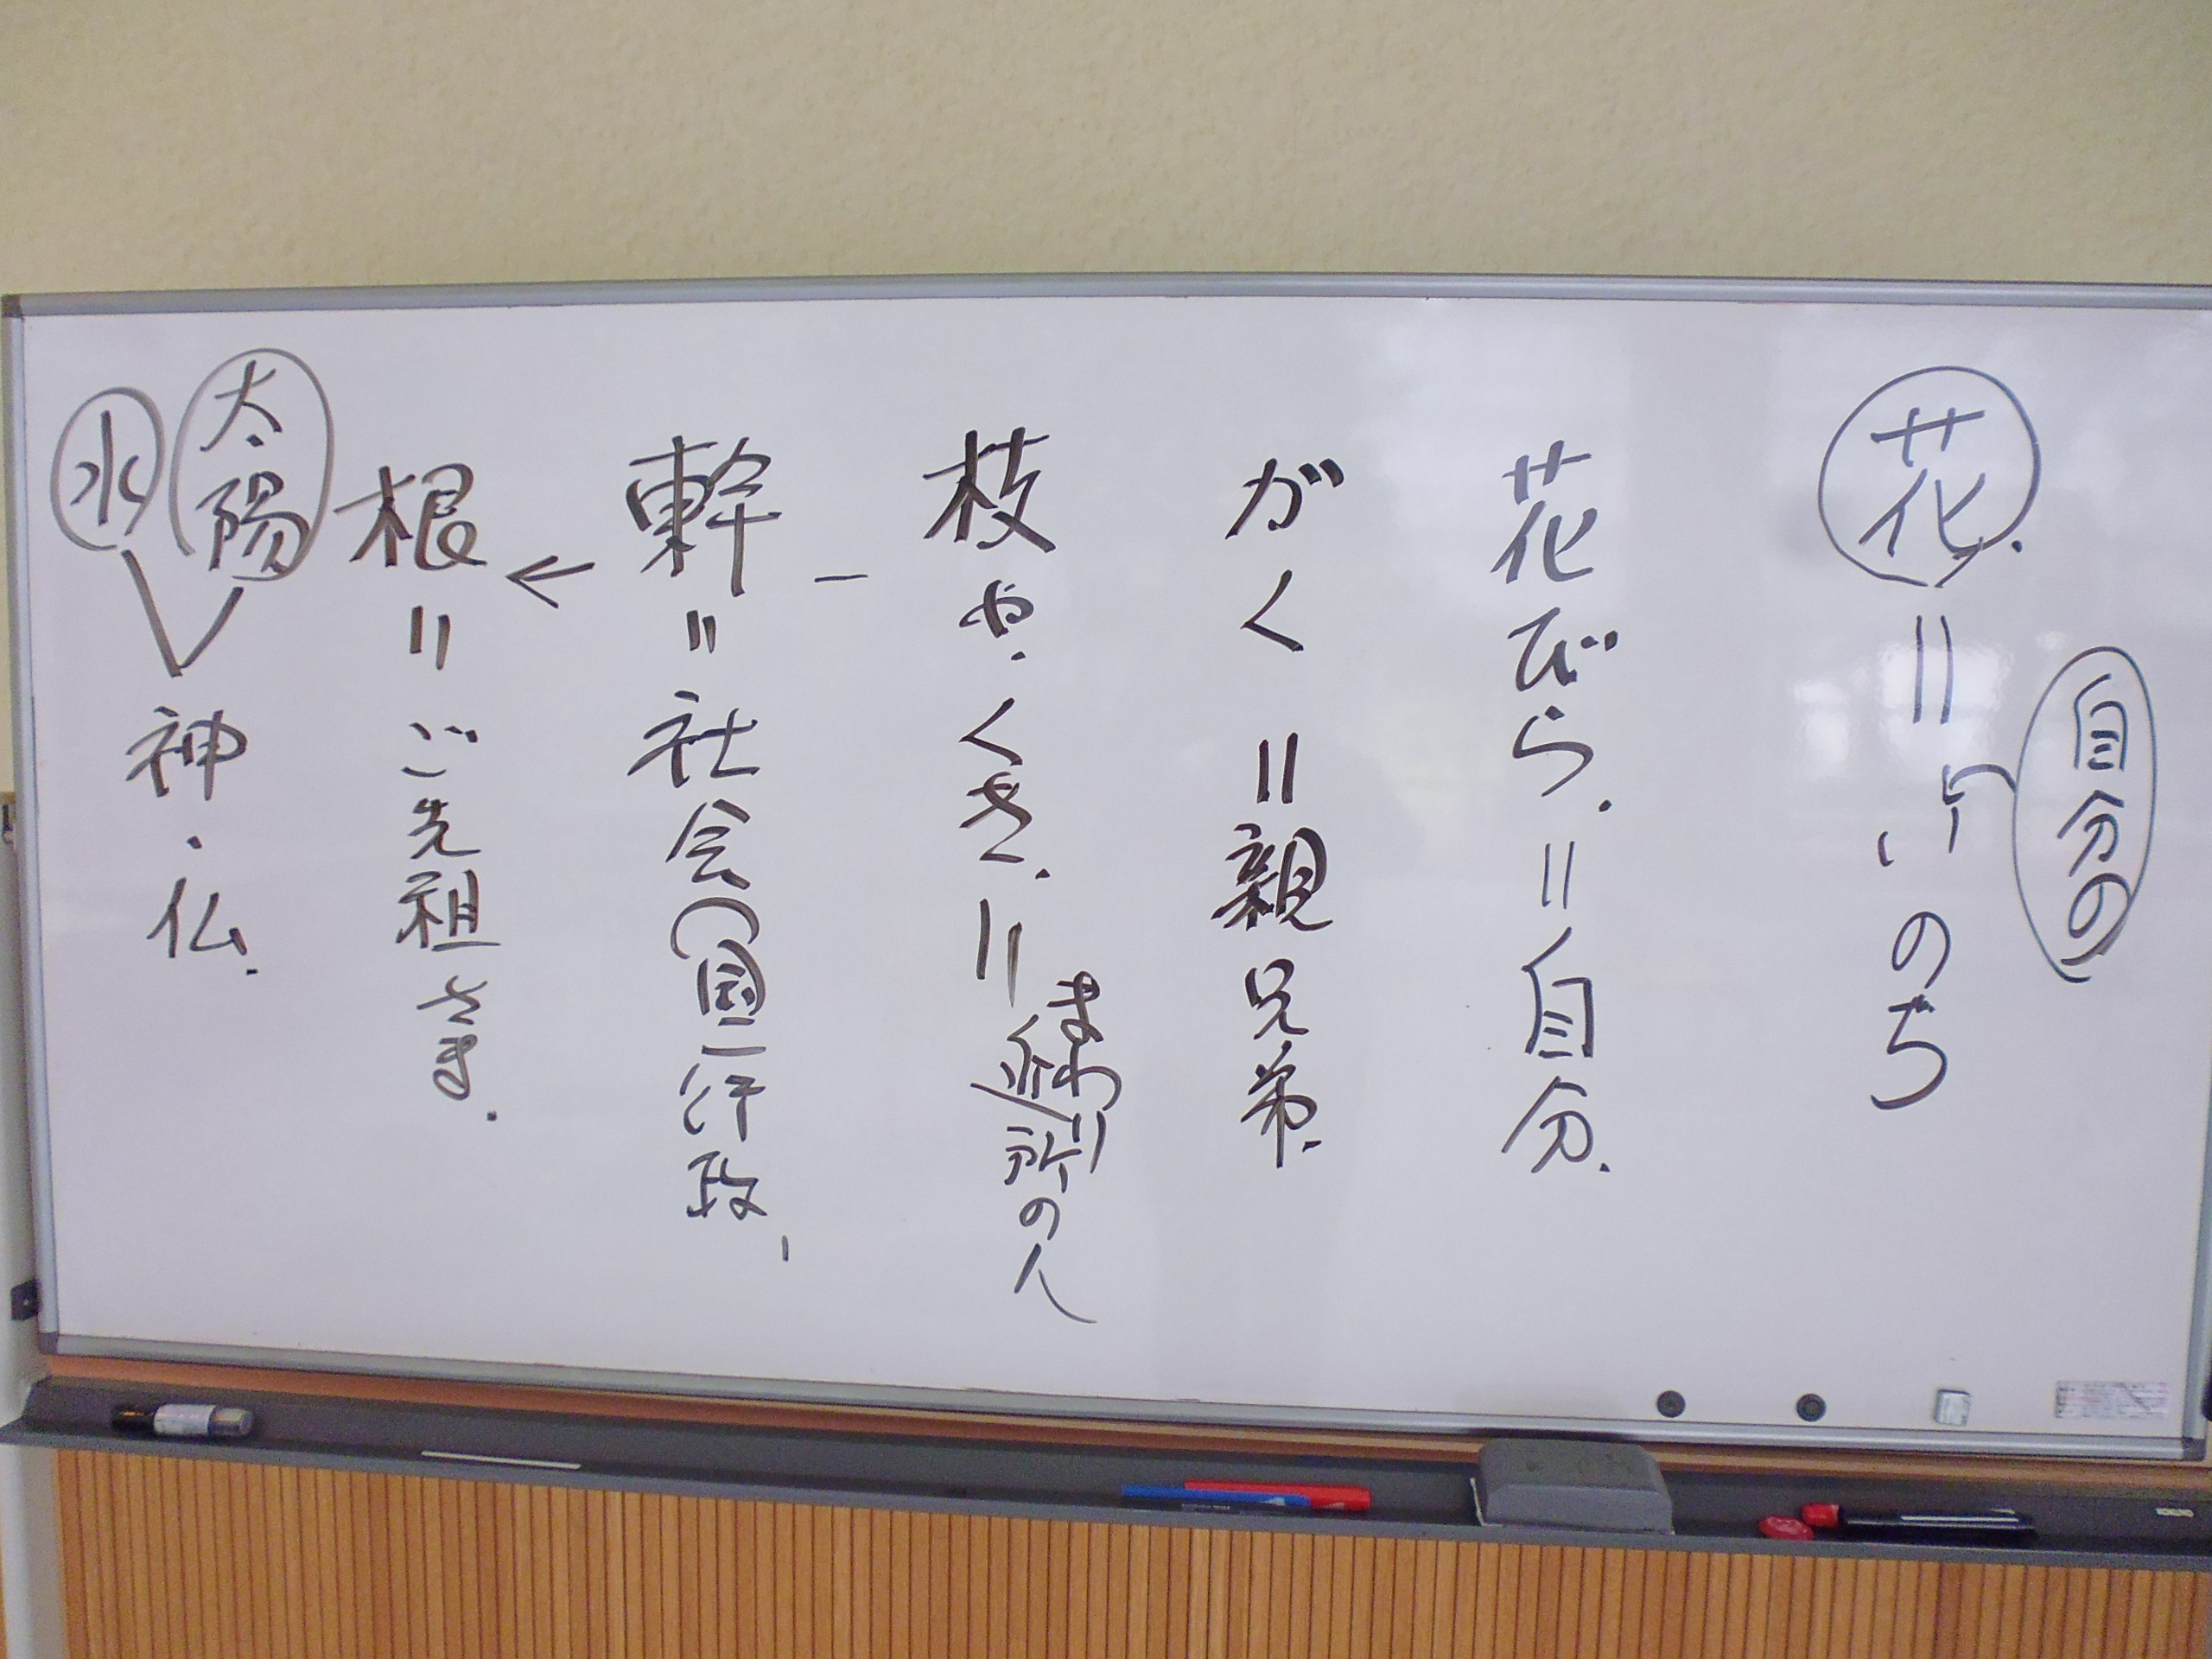 自分の
花.=いのち
花びら.=自分.
がく=親兄弟.
枝や.くき.=まわり近所の人
幹=社会(国)行政、
根=ご先祖さま.
太陽
水
神・仏.